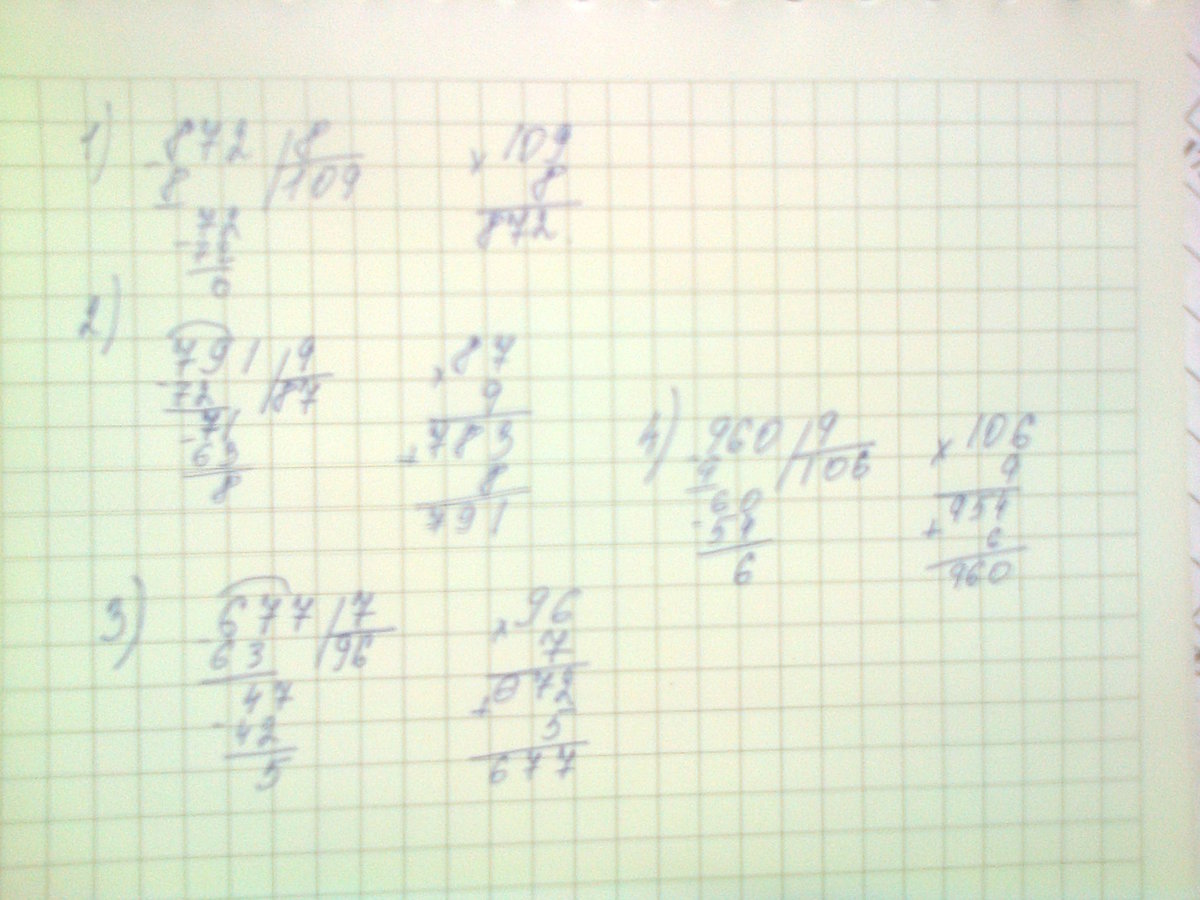 1) -872 | 8
8 | 109
-72
72
0
× 109
8
872
2) -791 | 9
72 | 87
-71
63
8
× 87
9
+783
8
791
3) -677 | 7
63 | 96
47
-42
5
× 96
7
+672
5
677
4) -960 | 9
9 | 106
60
-54
6
× 106
9
+954
6
960